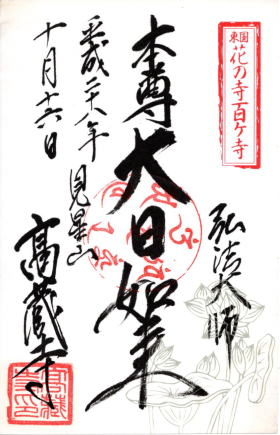 東国
花の寺百ヶ寺
弘法大師
本尊大日如来
平成二十八年
見星山
十月十六日
高蔵寺